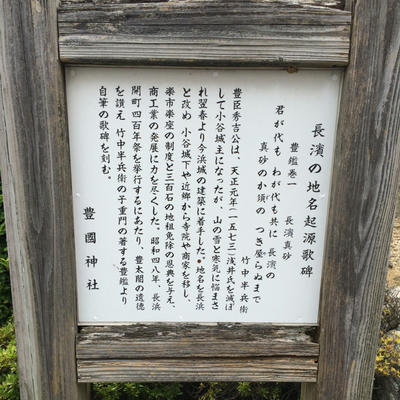 長濱の地名起源歌碑
豊鑑巻一　長濱真砂
君が代も　わが代も共に　長濱の
真砂のか須の　つき屋らぬまで
竹中半兵衛
豊臣秀吉公は、天正元年(一五七三)浅井氏を滅ぼ
して小谷城主になったが、山の雪と寒気に悩まさ
れ翌春より今浜城の建築に着手した。地名を長浜
と改め　小谷城下や近郷から寺院や商家を移し、
楽市楽座の制度と三百石の地租免除の恩典を与え、
商工業の発展に力を尽くした。昭和四八年、長浜
開町四百年祭を挙行するにあたり、豊太閤の遺徳
を讃え　竹中半兵衛の子重門の著する豊鑑より
自筆の歌碑を刻む。
豊國神社